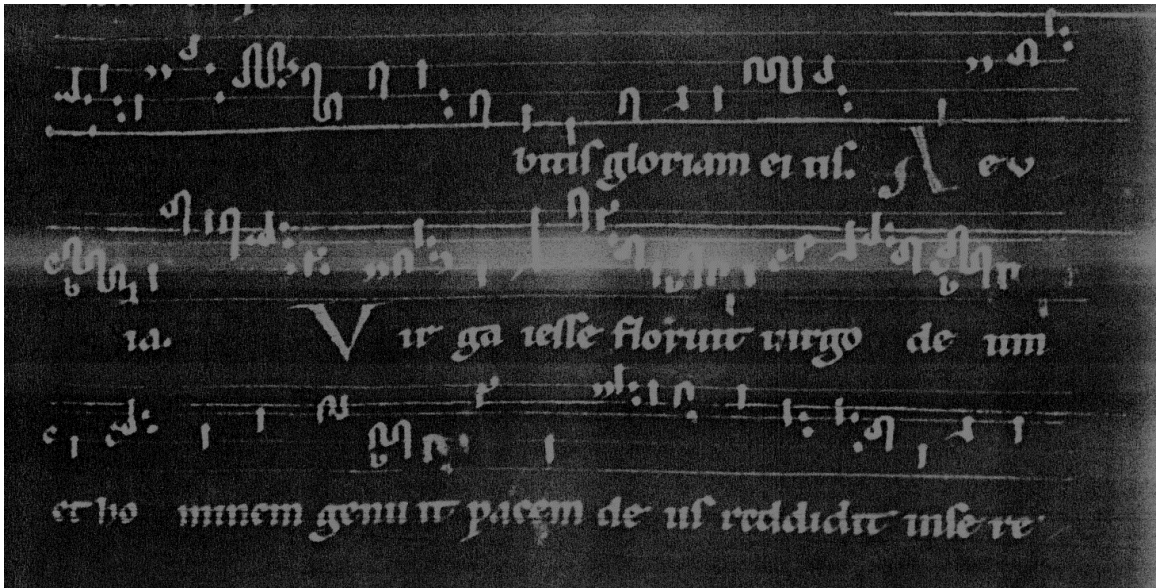 bitis gloriam ei us. A e v
ia. Vir ga iesse floruit virgo de um
et ho minem genu it pacem de us reddidit inse re